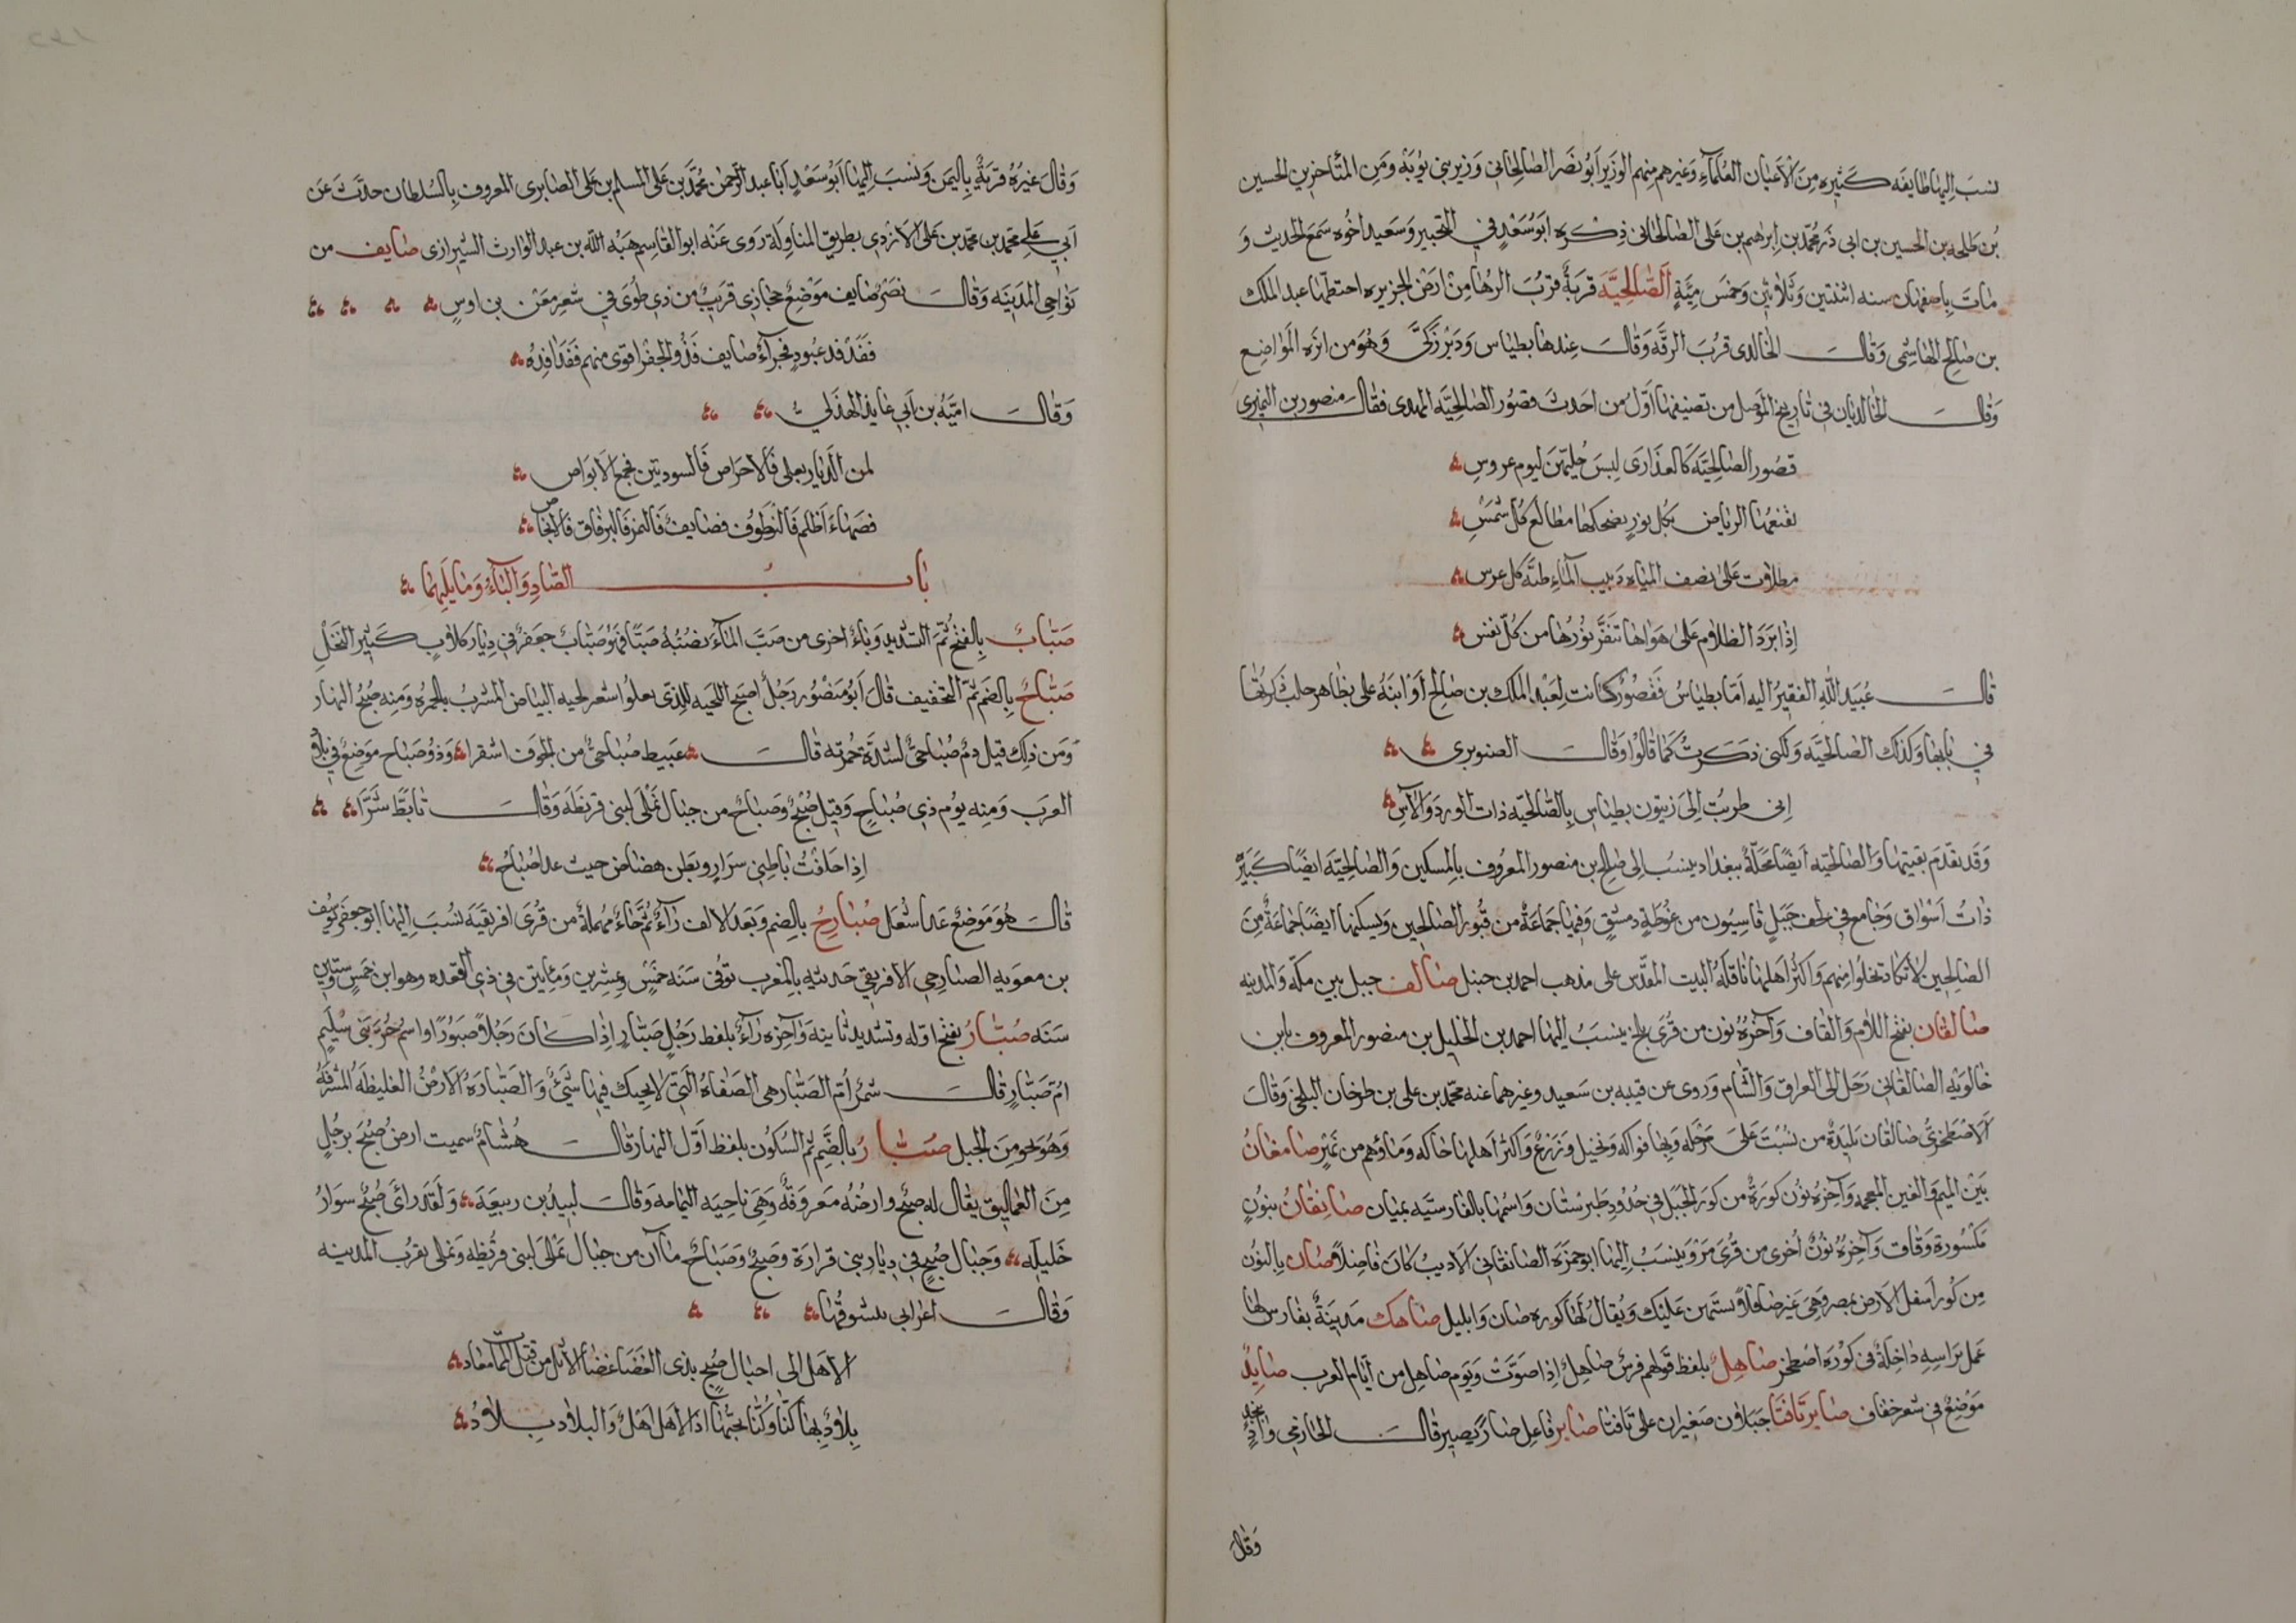 نسب اليها طايفه كثيره من الاعيان العلماء وغيرهم منهم الوزير ابو نصر الصالحاني وزير بني بويه ومن المتأخرين الحسين
بن طلحه بن الحسين بن ابى ذر محمد بن ابرهيم بن على الصالحانى ذكره ابو سعد في التحبير وسعيد اخوه سمع الحديث و
مات باصفهان سنه اثنتين وثلاثين وخمس مئة الصالحية قرية قرب الرها من ارض الجزيره اختطها عبد الملك
بن صالح الهاشمى وقال الخالدى قرب الرقه وقال عندها بطياس ودير زكى وهو من انزه المواضع
وقال الخالديان في تاريخ الموصل من تصنيفهما اول من احدث قصور الصالحيه المهدى فقال منصور بن النميرى
قصور الصالحية كالعذارى لبسن حليهن ليوم عروس
تقنعها الرياض بكل نور يضحكها مطالع كل شمس
مطلات على نصف المياه دبيب الماء طنة كل عرس
اذا برد الظلام على هواها تنفر نورها من كل نفس
قال عبيد الله الفقير اليه اما بطياس فقصور كانت لعبد الملك بن صالح او ابنه على بظاهر حلب ذكرتها
في بابها وكذلك الصالحيه ولكنى ذكرت كما قالوا وقال الصنوبرى
انى طربت الى زيتون بطياس بالصالحيه ذات الورد والآس
وقد تقدم بقيتها والصالحيه ايضا محلة ببغداد ينسب الى صالح بن منصور المعروف بالمسكين والصالحية ايضا كبير
ذات اسواق وجامع في لحف جبل قاسيون من غوطة دمشق وفيها جماعة من قبور الصالحين ويسكنها ايضا جماعة من
الصالحين لا تكاد تخلوا منهم واكثر اهلها ناقلة البيت المقدس على مذهب احمد بن حنبل صالف جبل بين مكه والمدينه
صالقان بفتح اللام والقاف وآخره نون من قرى بلخ ينسب اليها احمد بن الخليل بن منصور المعروف بابن
خالويه الصالقانى رحل الى العراق والشام وروى عن قتيبه بن سعيد وغيرهما عنه محمد بن على بن طرخان البلخى وقال
الاصطخرى صالقان بليدة من بست على مرحله وبها فواكه ونخيل وزرع واكثر اهلها حاكه وماؤهم من نهر صامغان
بين الميم والغين المعجمه وآخره نون كورة من كور الجبل في حدود طبرستان واسمها بالفارسيه بميان صانقان بنون
مكسورة وقاف وآخره نون اخرى من قرى مرو ينسب اليها ابو حمزه الصانقانى الاديب كان فاضلا صان بالنون
من كور اسفل الارض بمصر وهى غير صا فلا يستبهمن عليك ويقال لها كوره صان وابليل صاهك مدينة بفارس لها
عمل براسه داخلة في كورة اصطخر صاهل بلفظ قولهم فرس صاهل اذا صوتت ويوم صاهل من ايام العرب صايد
موضع في شعر خفاف صابرتافتا جبلان صغيران على تافتا صاير فاعل صار يصير قال الحازمي واد بنجد
وقال
وقال غيره قرية باليمن ونسب اليها ابو سعد ابا عبد الرحمن محمد بن على المسلم بن على الصايرى المعروف بالسلطان حدث عن
ابي على محمد بن محمد بن على الازدي بطريق المناولة روى عنه ابو القاسم هبه الله بن عبد الوارث الشيرازى صايف من
نواحى المدينه وقال نصر صايف موضع حجازى قريب من ذى طوى في شعر معن بن اوس
ففدفد عبود فخبرآء صايف فذو الجفر اقوى منهم ففدافده
وقال اميه بن ابي عايذ الهذلي
لمن الديار بعلى فالاحراص فالسودتين فمجمع الابواص
فضهاء اظلم فالنطوف فصايف فالنمر فالبرقات فالانحاص
باب الصاد والباء وما يليهما
صباب بالفتح ثم التشديد وباء اخرى من صب الماء يصبه صبا فهو صباب جعفر في ديار كلاب كثير النخل
صباح بالضم ثم التخفيف قال ابو منصور رجل اصبح اللحيه للذى يعلوا شعر لحيه البياض المشرب بالحمره ومنه صبح النهار
ومن ذلك قيل دم صباحى لشدة حمرته قال عبيط صباحي من الجوف اشقرا وذو صباح موضع في بلاد
العرب ومنه يوم ذي صباح وقيل صبح وصباح من جبال نملى لبنى قريظه وقال تابط شرا
اذا حلفت باطنى سرار وبطن هضاض حيث غدا صباح
قال هو موضع غدا شغل صبارح بالضم وبعد الالف رآء ثم حاء مهملة من قرى افريقيه نسب اليها ابو جعفر يوسف
بن معويه الصبارحى الافريقي حديثه بالمغرب توفى سنه خمس وعشرين ومايتين في ذي القعده وهو ابن خمس وستين
سنه صبار بفتح اوله وتشديد ثانيه وآخره رآء بلفظ رجل صبار اذا كان رجلا صبورا او اسم حرة بنى سليم
ام صبار قال شمر ام الصبار هى الصفاه التي لا يحيك فيها شيء والصباره الارض الغليظه المشرفة
وهو نحو من الجبل صبار بالضم ثم السكون بلفظ اول النهار قال هشام سميت ارض صبح برجل
من العماليق يقال له صبح وارضه معروفة وهي ناحيه اليمامه وقال لبيد بن ربيعة ولقد رأى صبح سواد
خليله وجبال صبح في ديار بنى فزارة وصبح وصباح ماآن من جبال نملى لبنى قريظه ونملى بقرب المدينه
وقال اعرابي يتشوقها
الا هل الى اجبال صبح بذى الغضا غضا الاثل من قبل الممات معاد
بلاد بها كنا وكنا نحبها اذ الاهل اهل والبلاد بلاد